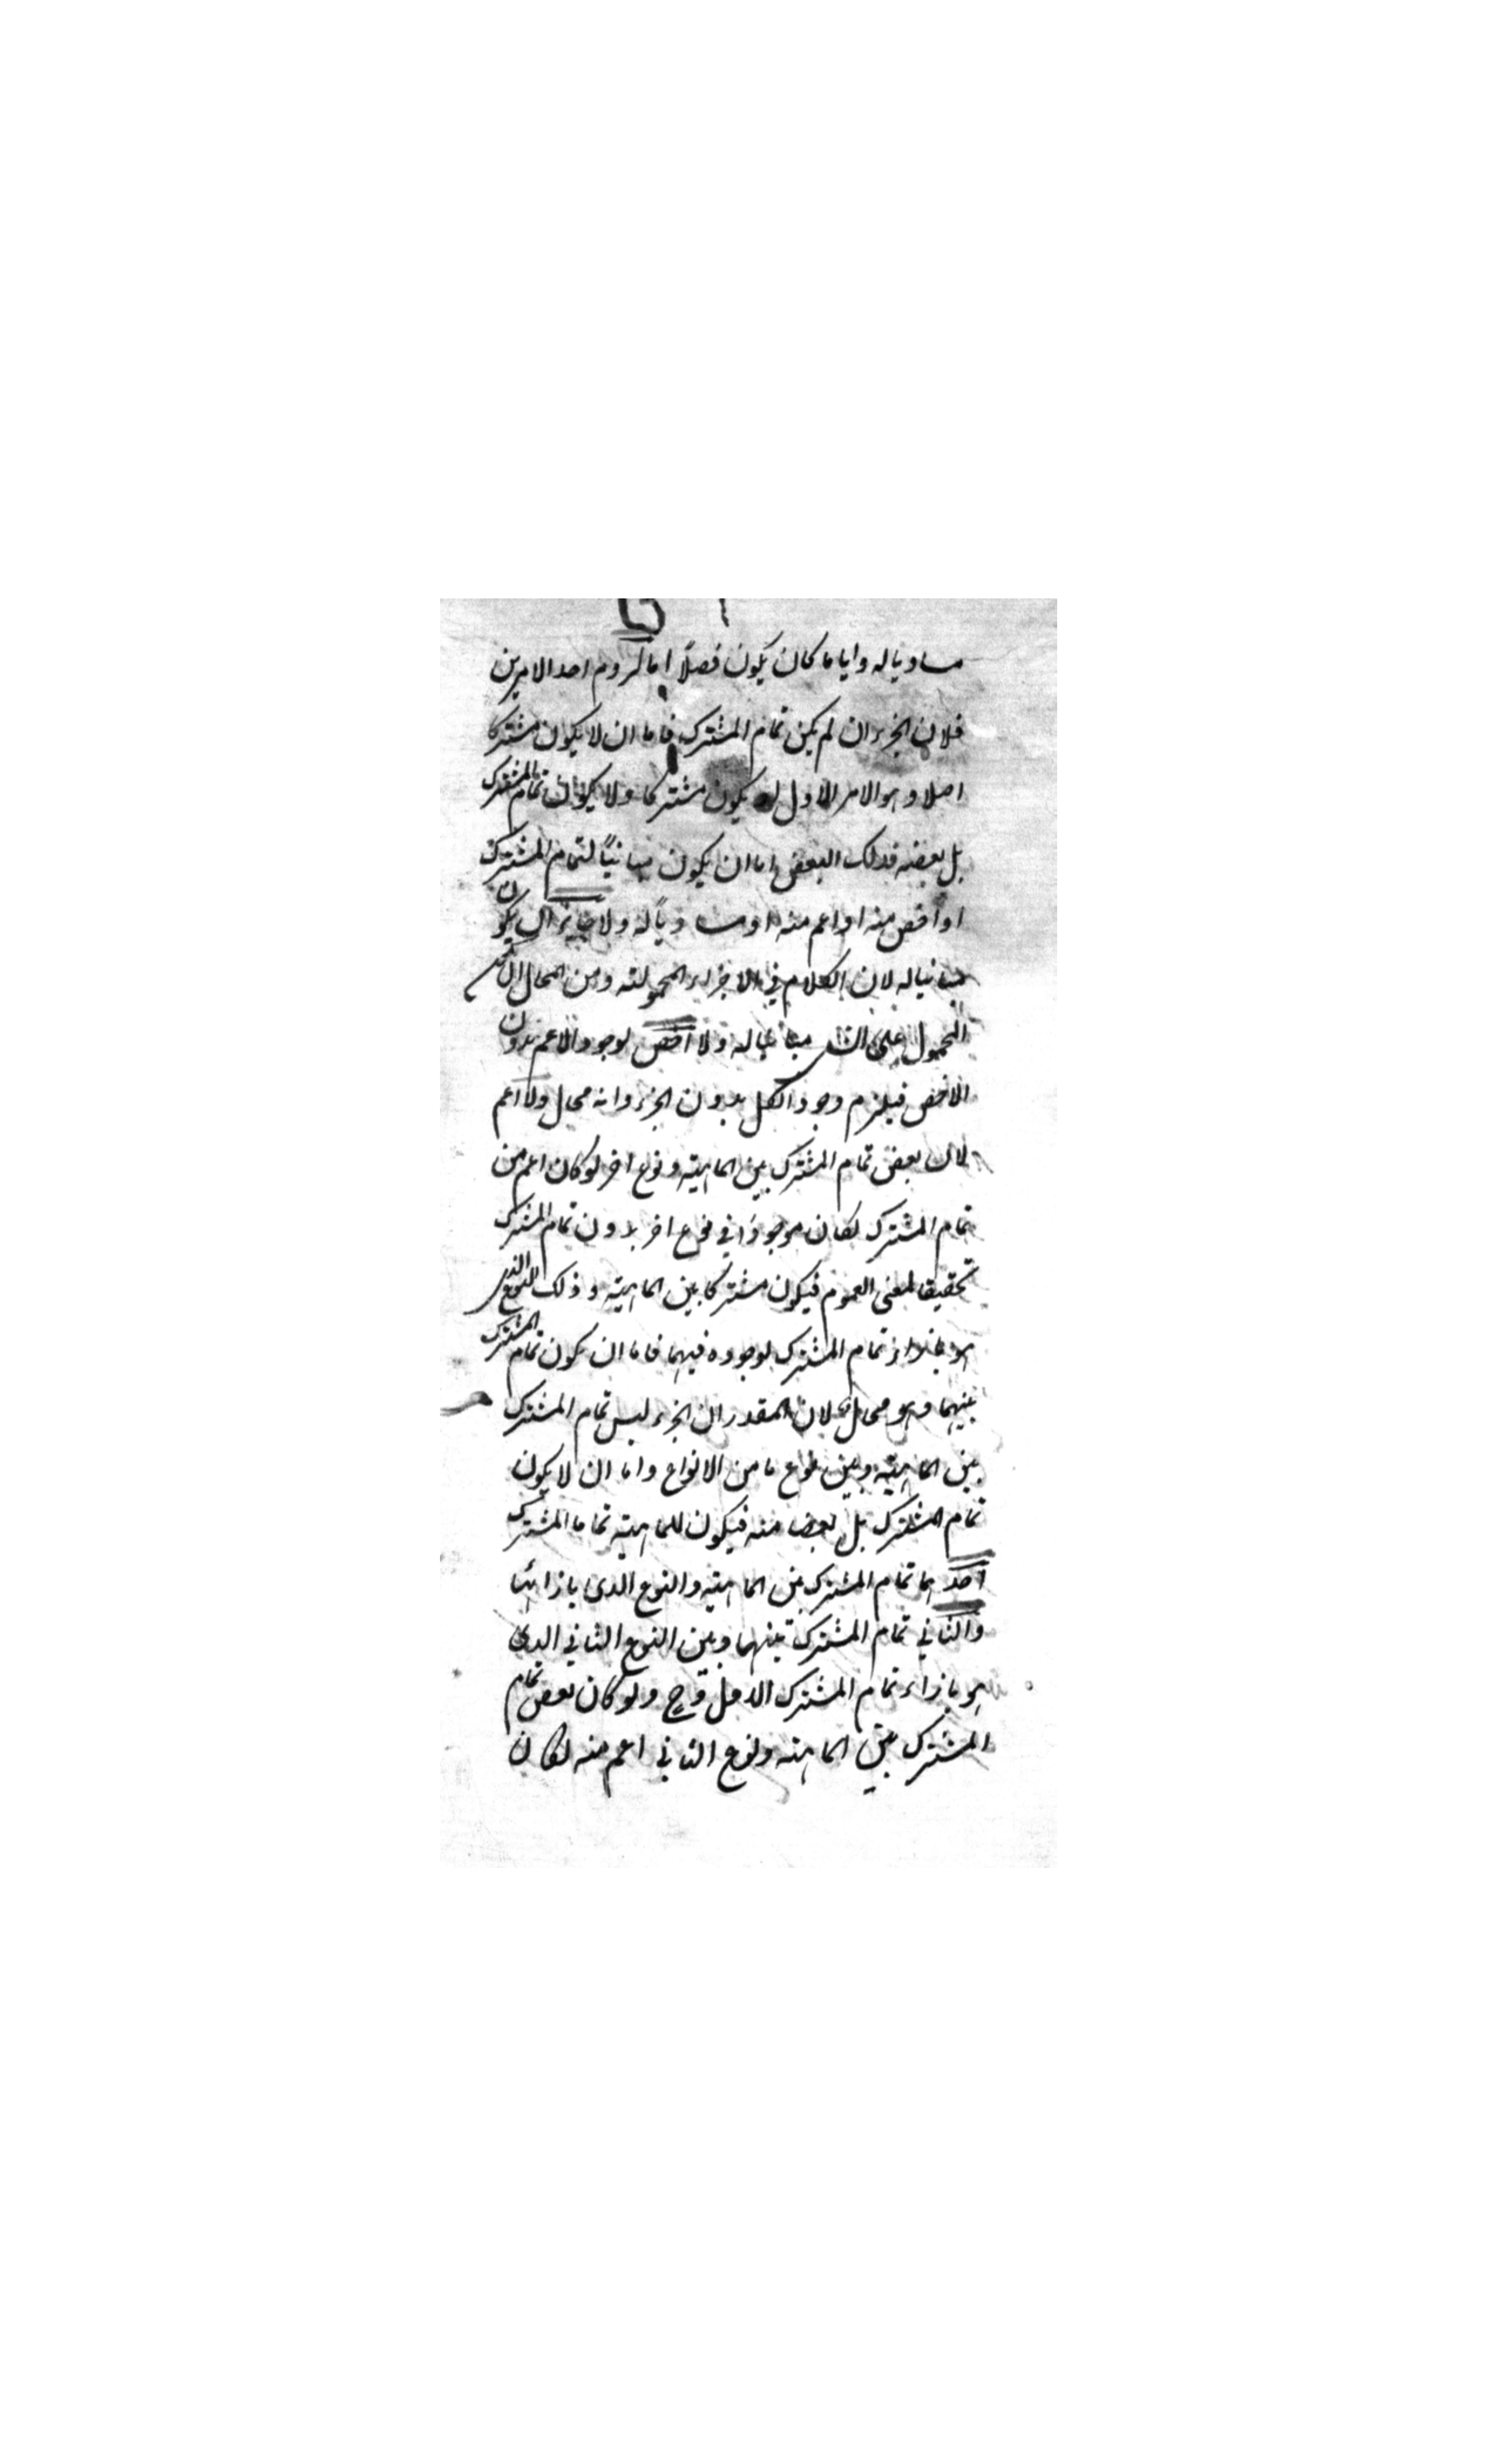 مساويا له وايا ما كان يكون فصلاً اما لزوم احد الامرين
فلان الجزء ان لم يكن تمام المشترك فاما ان لا يكون مشتركا
اصلا وهو الامر الاول او يكون مشتركا ولا يكون تمام المشترك
بل بعضه فذلك البعض اما ان يكون مبانياً لتمام المشترك
او اخص منه او اعم منه او مساوياً له ولا جايز ان يكون
مبانيا له لان الكلام في الاجزاء المحمولته ومن المحال ان يكون
المحمول على الشي مبانيا له ولا اخص لوجود الاعم بدون
الاخص فيلزم وجود الكل بدون الجزء وانه محال ولا اعم
لان بعض تمام المشترك بين الماهيته ونوع اخر لو كان اعم من
تمام المشترك لكان موجوداً في نوع اخر بدون تمام المشترك
تحقيقا لمعنى العموم فيكون مشتركا بين الماهيته وذلك النوع الذى
هو بازاء تمام المشترك لوجوده فيهما فاما ان يكون تمام المشترك
بينهما وهو محال لان المقدر ان الجزء ليس تمام المشترك
بين الماهيته وبين نوع ما من الانواع واما ان لا يكون
تمام المشترك بل بعضا منه فيكون للماهيته تماما المشترك
احدهما تمام المشترك بين الماهيته والنوع الذى بازائها
والثاني تمام المشترك بينهما وبين النوع الثاني الذى
هو بازاء تمام المشترك الاول وح ولو كان بعض تمام
المشترك بين الماهيته ونوع الثاني اعم منه لكان